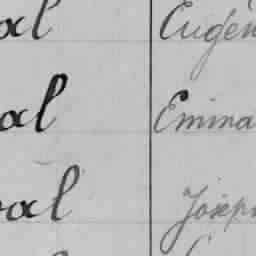 al Eugén
al Emma
al Joseph